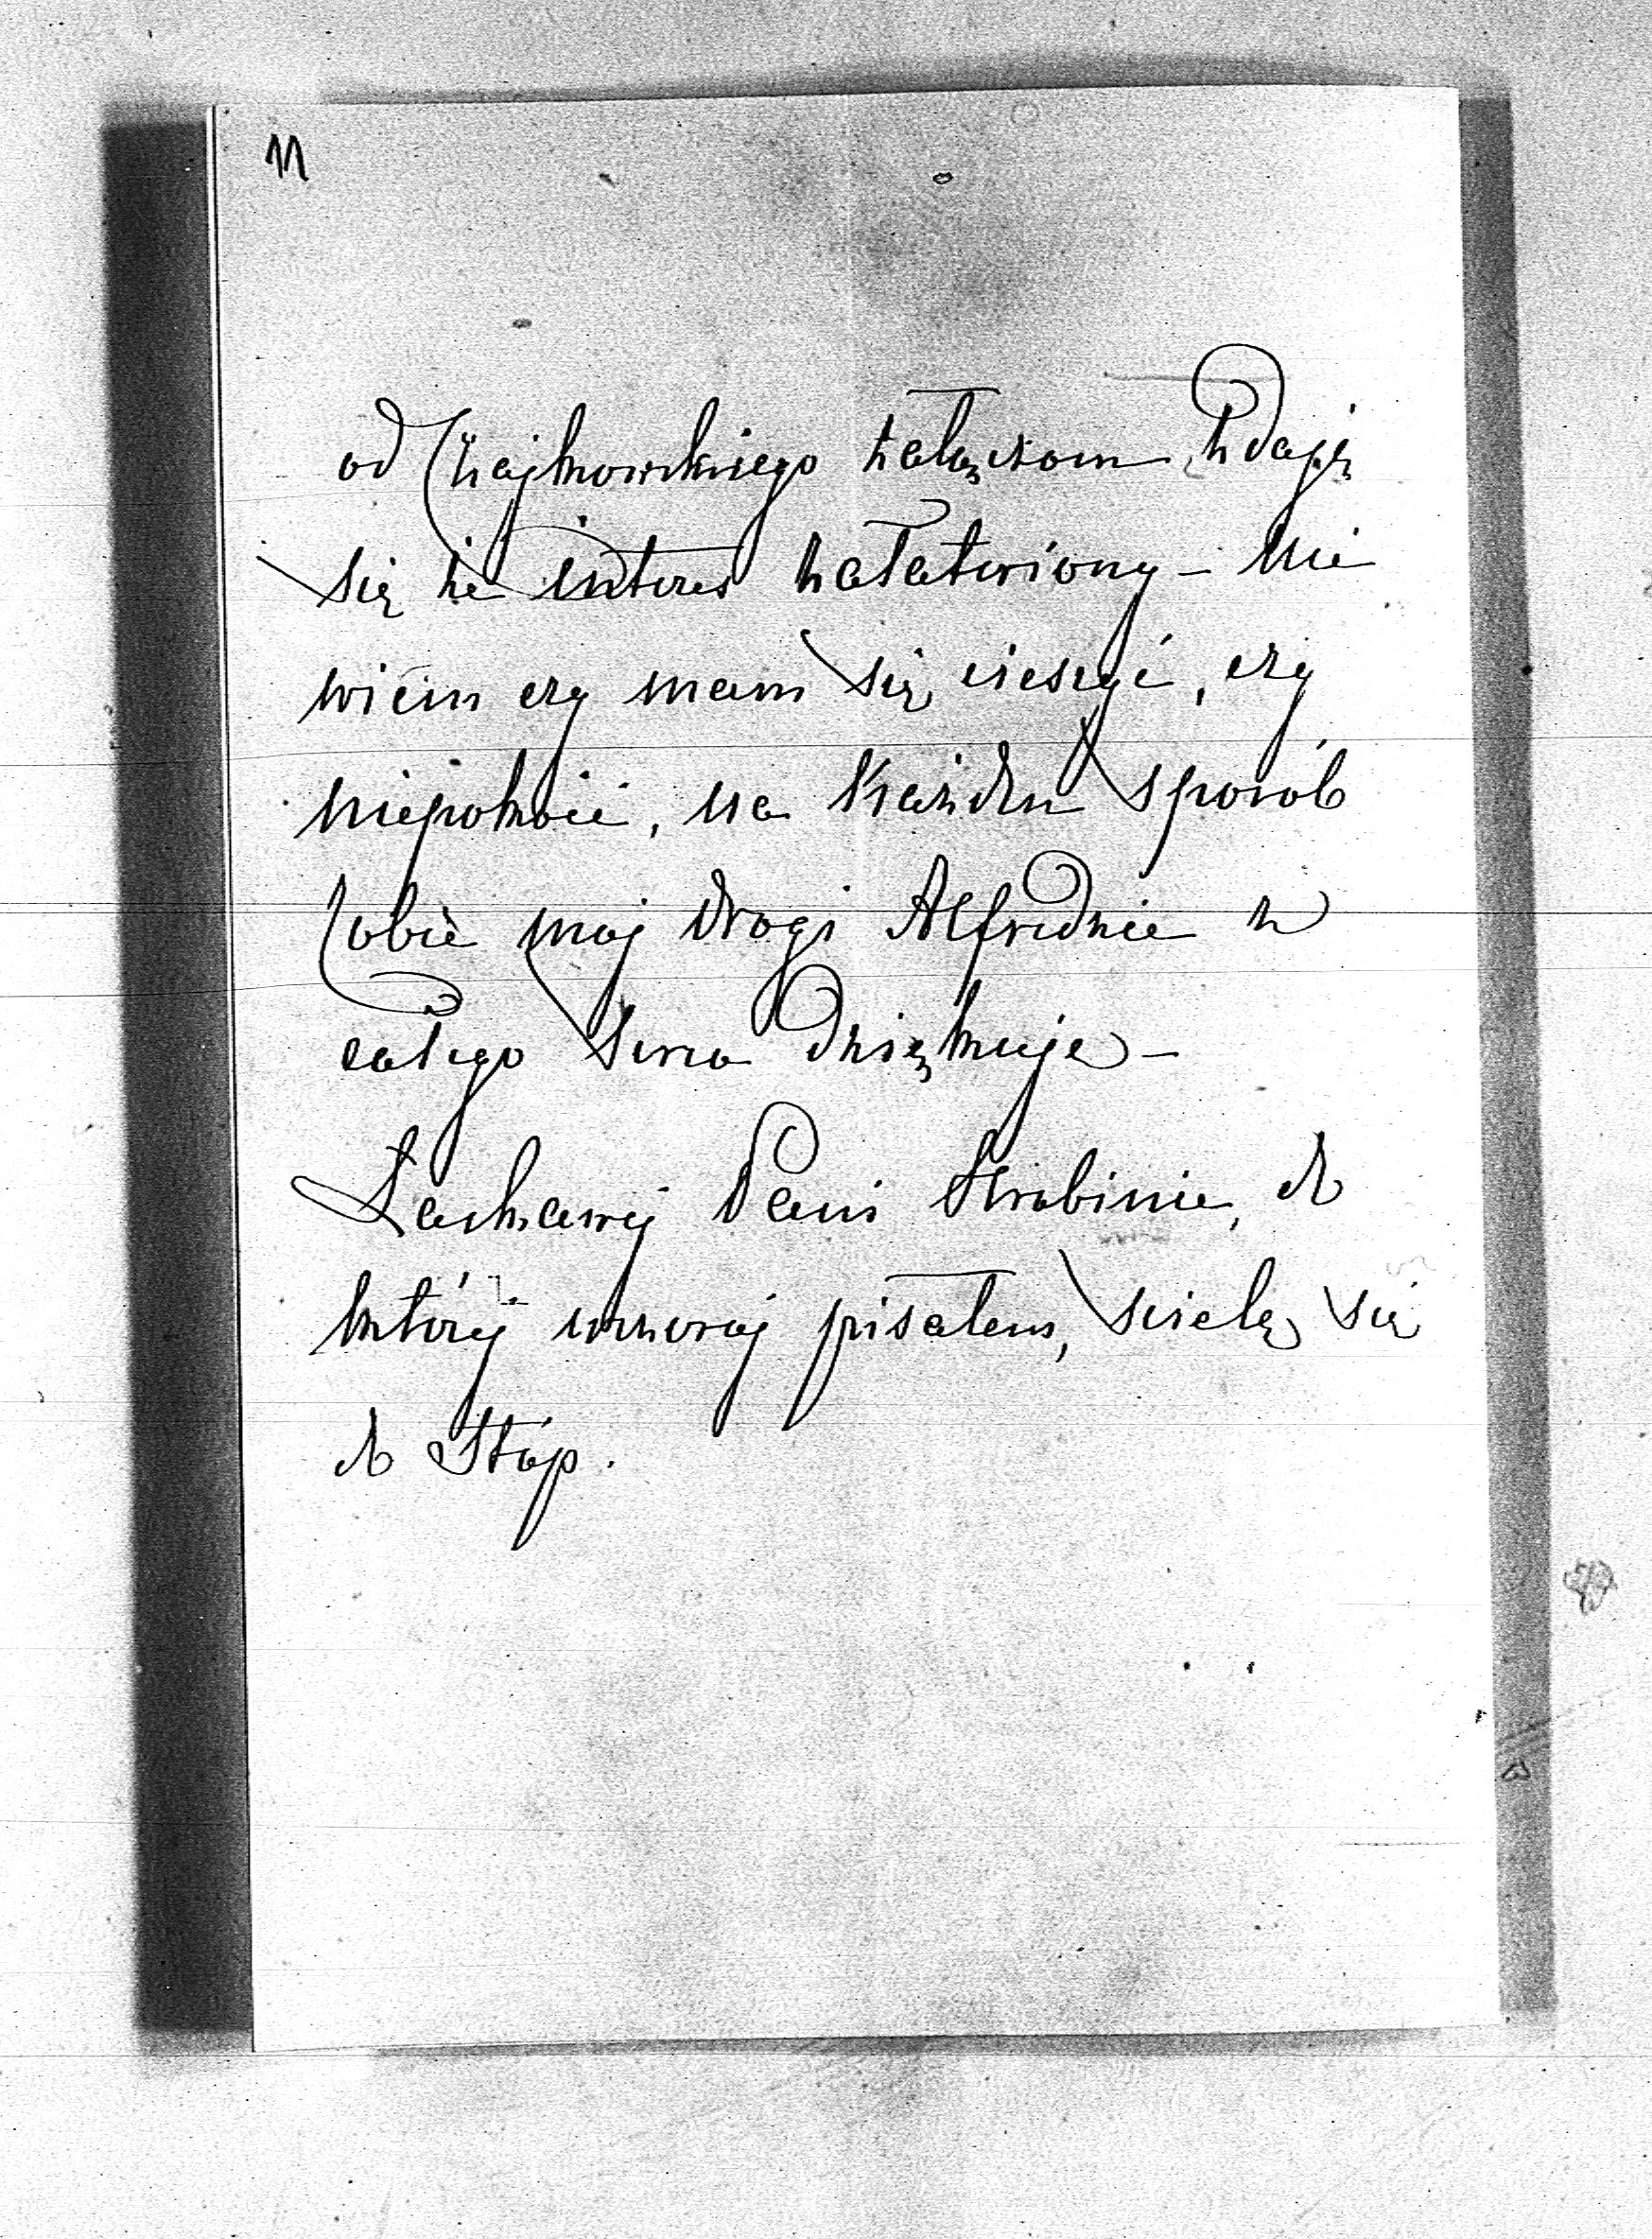 11
od Czajkowskiego załączam zdaję
się że interes załatwiony – nie
wiem czy mam się cieszyć, czy
niepokoić, na każden sposób
Tobie mój drogi Alfredzie z
całego serca dziękuje –
Łaskawej Pani Hrabinie, do
której wczoraj pisałem, ścielę się
do Stóp.